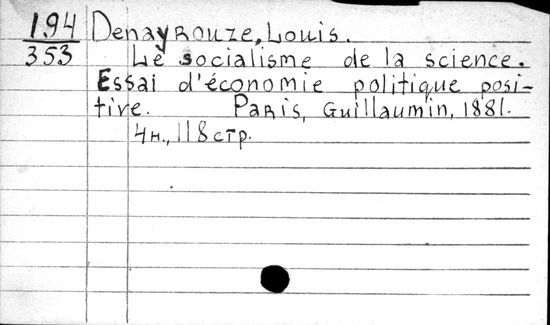 194 Denayrouze, Louis.
353 Le socialisme de la science.
Essai d'économie politique posi-
tive. Paris, Guillaumin, 1881.
4н., 118 стр.